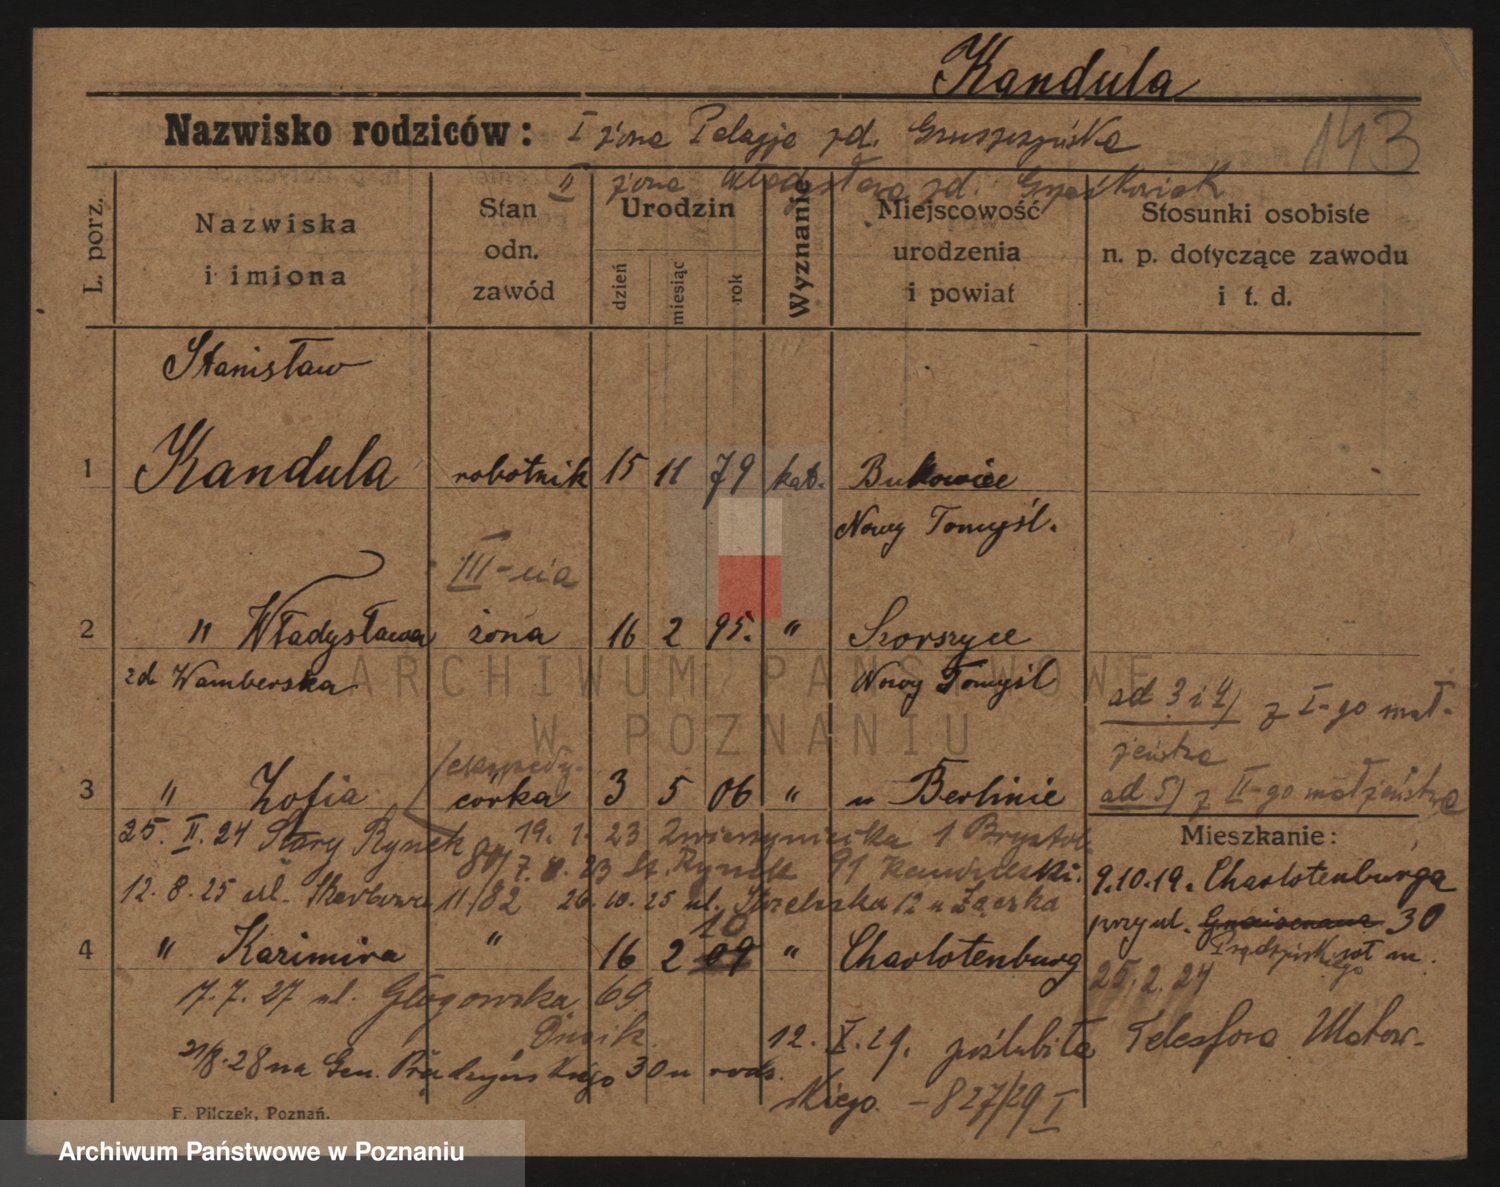 Kandula
Nazwisko rodziców: I żona Pelagja zd. Gruszczyńska 143
II żona Władysława zd. Gryśkowiak
L. porz.
Nazwiska i imiona
Stan odn. zawód
Urodzin
dzień miesiąc rok
Wyznanie
Miejscowość urodzenia i powiat
Stosunki osobiste n. p. dotyczące zawodu i t. d.
Stanisław
1 Kandula robotnik 15 11 79 kat. Bukowiec
Nowy Tomyśl.
III-cia
2 " Władysława żona 16 2 95. "
zd Wamberska Nowy Tomyśl
ad 3 i 4) z I-go mał-
żeństwa
3 " Zofia córka 3 5 06 " w Berlinie
ad 5) z II-go małżeństwa
Mieszkanie:
25. II. 24 Stary Rynek 19. 1. 23 Zwierzyniecka 1 Brystol.
80/ 7. 8. 23 St. Rynek 91
12. 8. 25 ul. Skarbowa 11/82 26. 10. 25 ul. Strzelecka 12 u
9.10.19. Charlotenburga
przy ul. Gnaisenaua 30
Prądzyńskiego
10
4 " Kazimira " 16 2 09 " Charlotenburg
25. 2. 24
17. 7. 27 ul. Głogowska 69
21/8. 28 na Gen. Prądzyńskiego 30 u rodz.
12. X. 29. poślubiła Telesfora Makow-
skiego - 827/29 I
F. Pilczek, Poznań.
ARCHIWUM PAŃSTWOWE
W POZNANIU
Archiwum Państwowe w Poznaniu